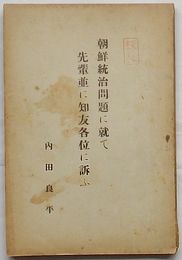 朝鮮統治問題に就て
先輩並に知友各位に訴ふ
内田良平